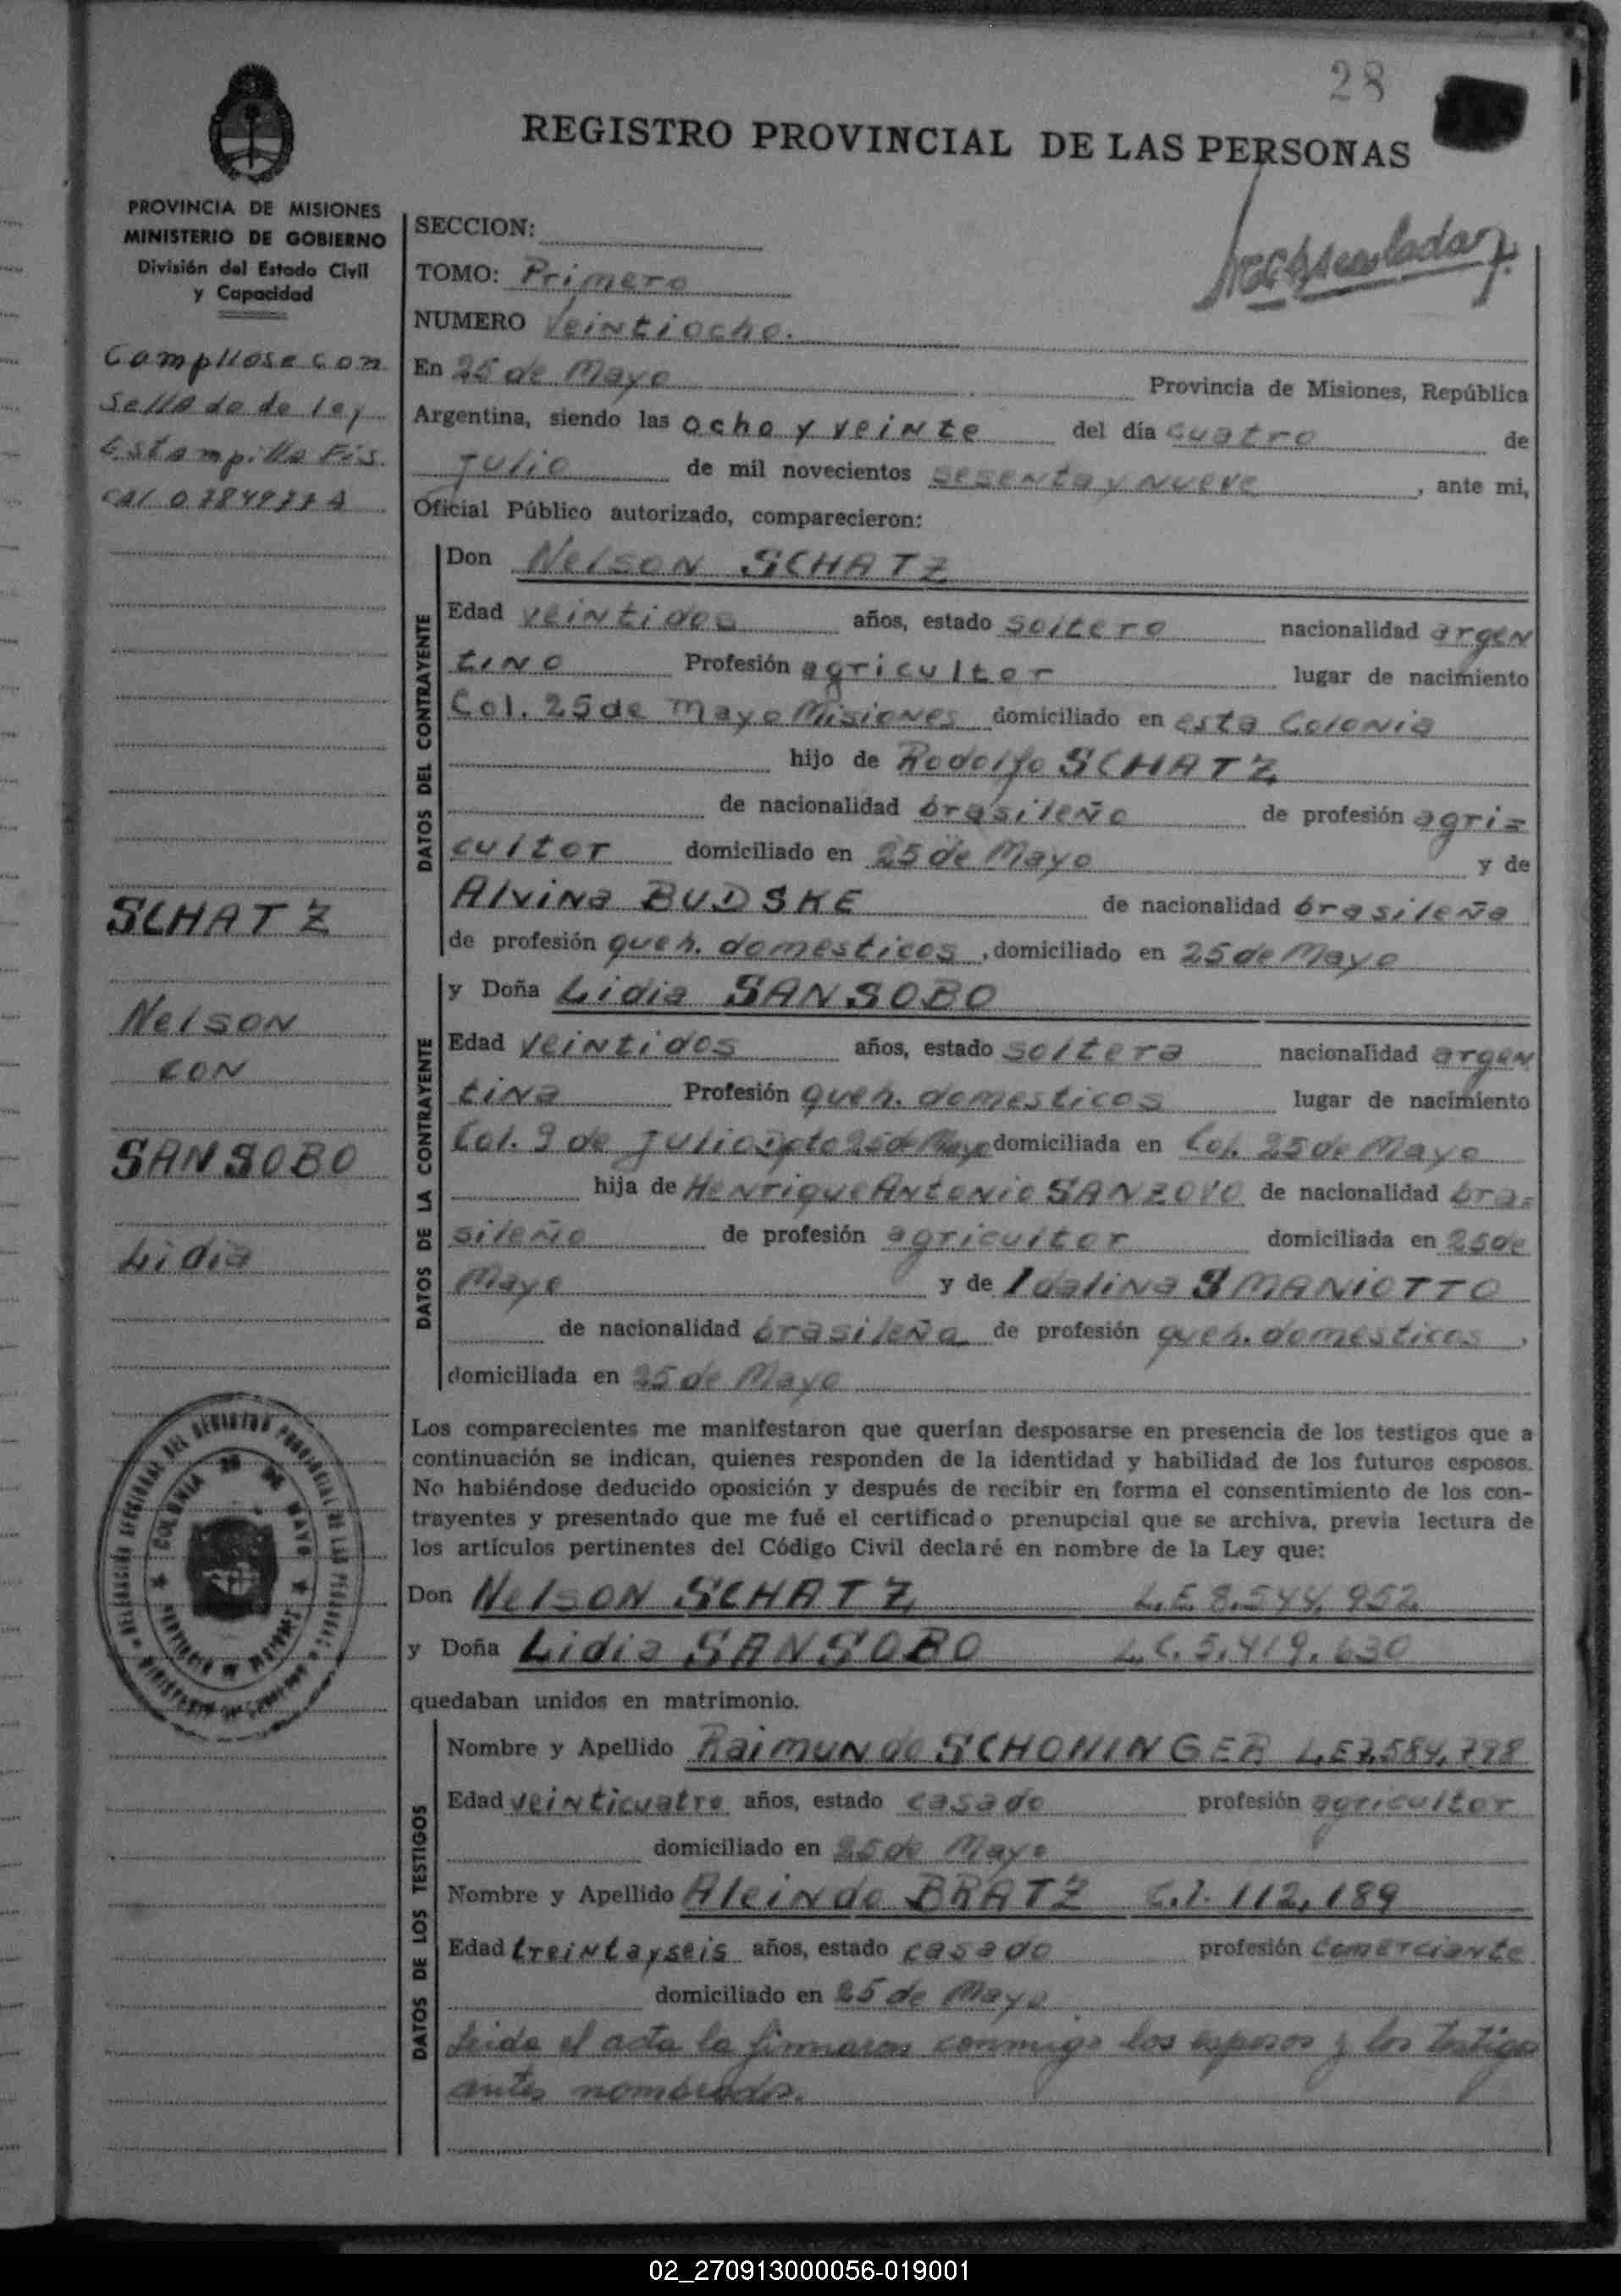 28
REGISTRO PROVINCIAL DE LAS PERSONAS
PROVINCIA DE MISIONES
MINISTERIO DE GOBIERNO
División del Estado Civil
y Capacidad
Campliose con
Sellado de ley
Estampilla Fis
cal
SCHATZ
Nelson
CON
SANSOBO
Lidia
COLONIA 25 DE MAYO
SECCION:
TOMO: Primero
NUMERO Veintiocho.
En 25 de Mayo Provincia de Misiones, República
Argentina, siendo las ocho y veinte del día cuatro de
julio de mil novecientos sesenta y nueve, ante mi,
Oficial Público autorizado, comparecieron:
DATOS DEL CONTRAYENTE
Don Nelson SCHATZ
Edad veintidos años, estado soltero nacionalidad argen
tino Profesión agricultor lugar de nacimiento
Col. 25 de Mayo Misiones domiciliado en esta Colonia
hijo de Rodolfo SCHATZ
de nacionalidad brasileño de profesión agri=
cultor domiciliado en 25 de Mayo y de
Alvina BUDSKE de nacionalidad brasileña
de profesión queh. domesticos, domiciliado en 25 de Mayo
DATOS DE LA CONTRAYENTE
y Doña Lidia SANSOBO
Edad veintidos años, estado soltera nacionalidad argen
tina Profesión queh. domesticos lugar de nacimiento
Col. 9 de Julio Dpto 25 de Mayo domiciliada en Col. 25 de Mayo
hija de Henrique Antonio SANZOVO de nacionalidad bra=
sileño de profesión agricultor domiciliada en 25 de
Mayo y de Idalina SMANIOTTO
de nacionalidad brasileña de profesión queh. domesticos,
domiciliada en 25 de Mayo
Los comparecientes me manifestaron que querían desposarse en presencia de los testigos que a
continuación se indican, quienes responden de la identidad y habilidad de los futuros esposos.
No habiéndose deducido oposición y después de recibir en forma el consentimiento de los con-
trayentes y presentado que me fué el certificado prenupcial que se archiva, previa lectura de
los artículos pertinentes del Código Civil declaré en nombre de la Ley que:
Don Nelson SCHATZ L.E 8.544.952
y Doña Lidia SANSOBO L.C. 5.419.630
quedaban unidos en matrimonio.
DATOS DE LOS TESTIGOS
Nombre y Apellido Raimundo SCHONINGER L.E 7.584.798
Edad veinticuatro años, estado casado profesión agricultor
domiciliado en 25 de Mayo
Nombre y Apellido Aleindo BRATZ C.I. 112.189
Edad treintayseis años, estado casado profesión Comerciante
domiciliado en 25 de Mayo
Leida el acta la firmaron conmigo los esposos y los testigos
antes nombrados.
02_270913000056-019001